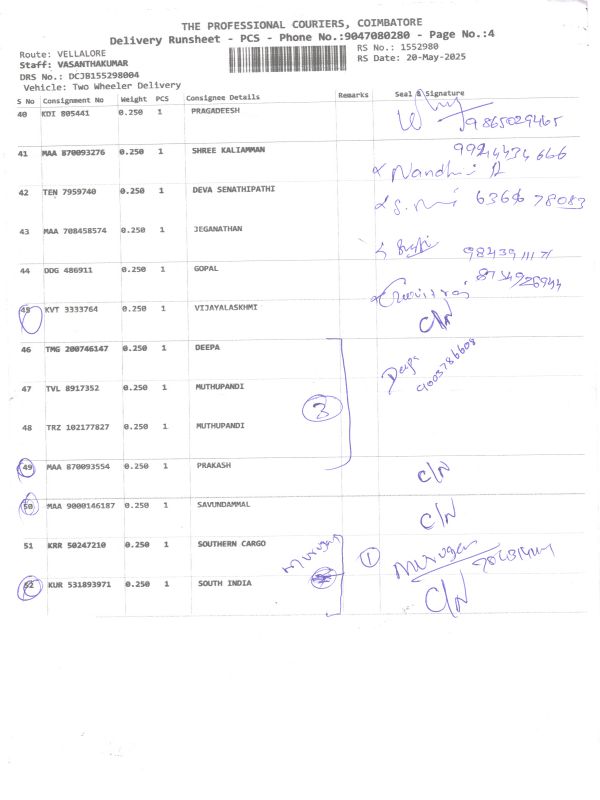 THE PROFESSIONAL COURIERS, COIMBATORE
Delivery Runsheet - PCS - Phone No.:9047080280 - Page No.:4
Route: VELLALORE RS No.: 1552980
Staff: VASANTHAKUMAR RS Date: 20-May-2025
DRS No.: DCJB155298004
Vehicle: Two Wheeler Delivery
S No Consignment No Weight PCS Consignee Details Remarks Seal & Signature
40 KDI 805441 0.250 1 PRAGADEESH 9865029465
41 MAA 870093276 0.250 1 SHREE KALIAMMAN 9924434666
Nandhi
42 TEN 7959740 0.250 1 DEVA SENATHIPATHI
43 MAA 708458574 0.250 1 JEGANATHAN
44 DDG 486911 0.250 1 GOPAL
45 KVT 3333764 0.250 1 VIJAYALASKHMI C/N
46 TMG 200746147 0.250 1 DEEPA Deepa
9003786608
47 TVL 8917352 0.250 1 MUTHUPANDI
3
48 TRZ 102177827 0.250 1 MUTHUPANDI
49 MAA 870093554 0.250 1 PRAKASH C/N
50 MAA 9000146187 0.250 1 SAVUNDAMMAL C/N
51 KRR 50247210 0.250 1 SOUTHERN CARGO Murugan 1 Murugan
52 KUR 531893971 0.250 1 SOUTH INDIA C/N